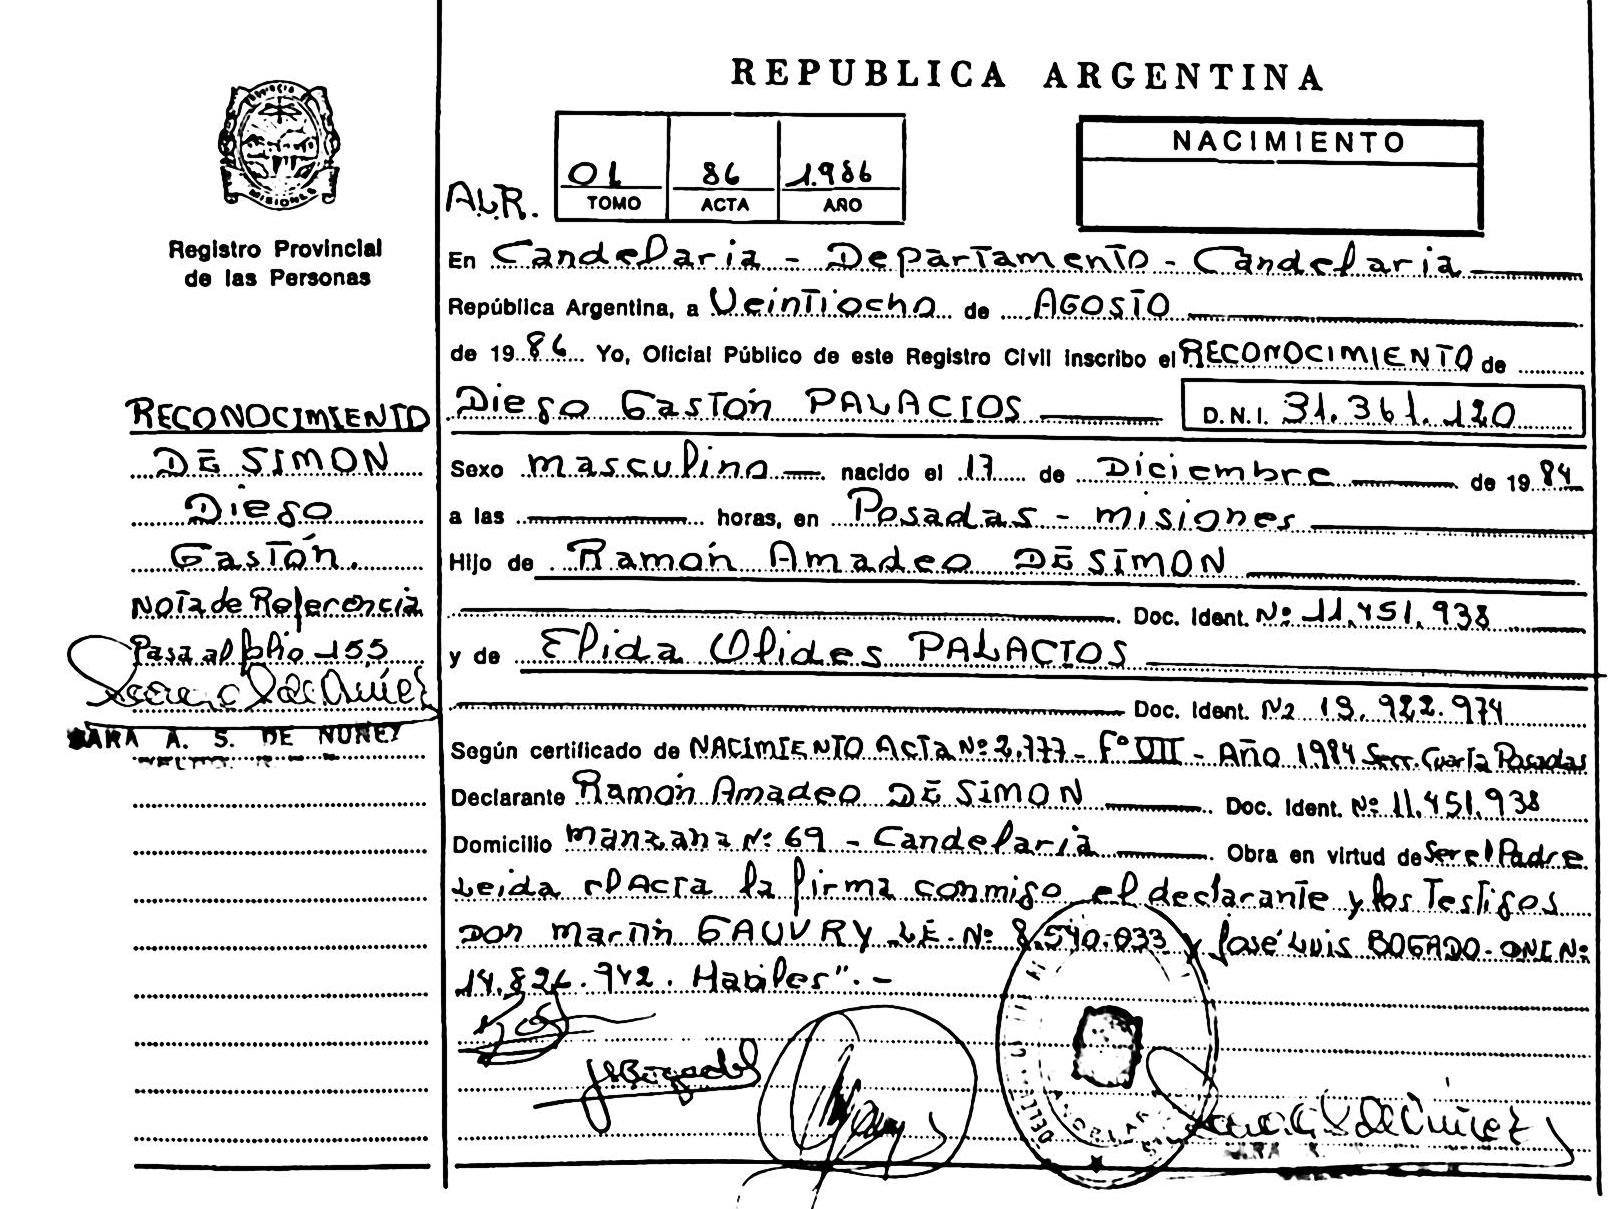 REPUBLICA ARGENTINA
MISIONES
Registro Provincial
de las Personas
A.L.R.
01 86 1.986
TOMO ACTA AÑO
NACIMIENTO
En Candelaria - Departamento - Candelaria
República Argentina, a Veintiocho de AGOSTO
de 1986 Yo, Oficial Público de este Registro Civil inscribo el RECONOCIMIENTO de
Diego Gastón PALACIOS D.N.I. 31.361.120
Sexo masculino nacido el 17 de Diciembre de 1984
a las horas, en Posadas - misiones
Hijo de Ramón Amadeo DE SIMON
Doc. Ident. Nº 11.451.938
y de Elida Olides PALACIOS
Doc. Ident. Nº 13.922.974
Según certificado de NACIMIENTO ACTA Nº 2.777 - Fº VII - Año 1984 Secc. Cuarta Posadas
Declarante Ramón Amadeo DE SIMON Doc. Ident. Nº 11.451.938
Domicilio manzana Nº 69 - Candelaria Obra en virtud de Ser el Padre
Leida el Acta la firma conmigo el declarante y los Testigos
Don Martín GAUVRY L.E. Nº 8.540.033 y José Luis BOGADO - DNI Nº
14.826.942. Habiles". -
RECONOCIMIENTO
DE SIMON
Diego
Gastón.
Nota de Referencia
Pasa al folio 155
SARA A. S. DE NUÑEZ
JLBogado